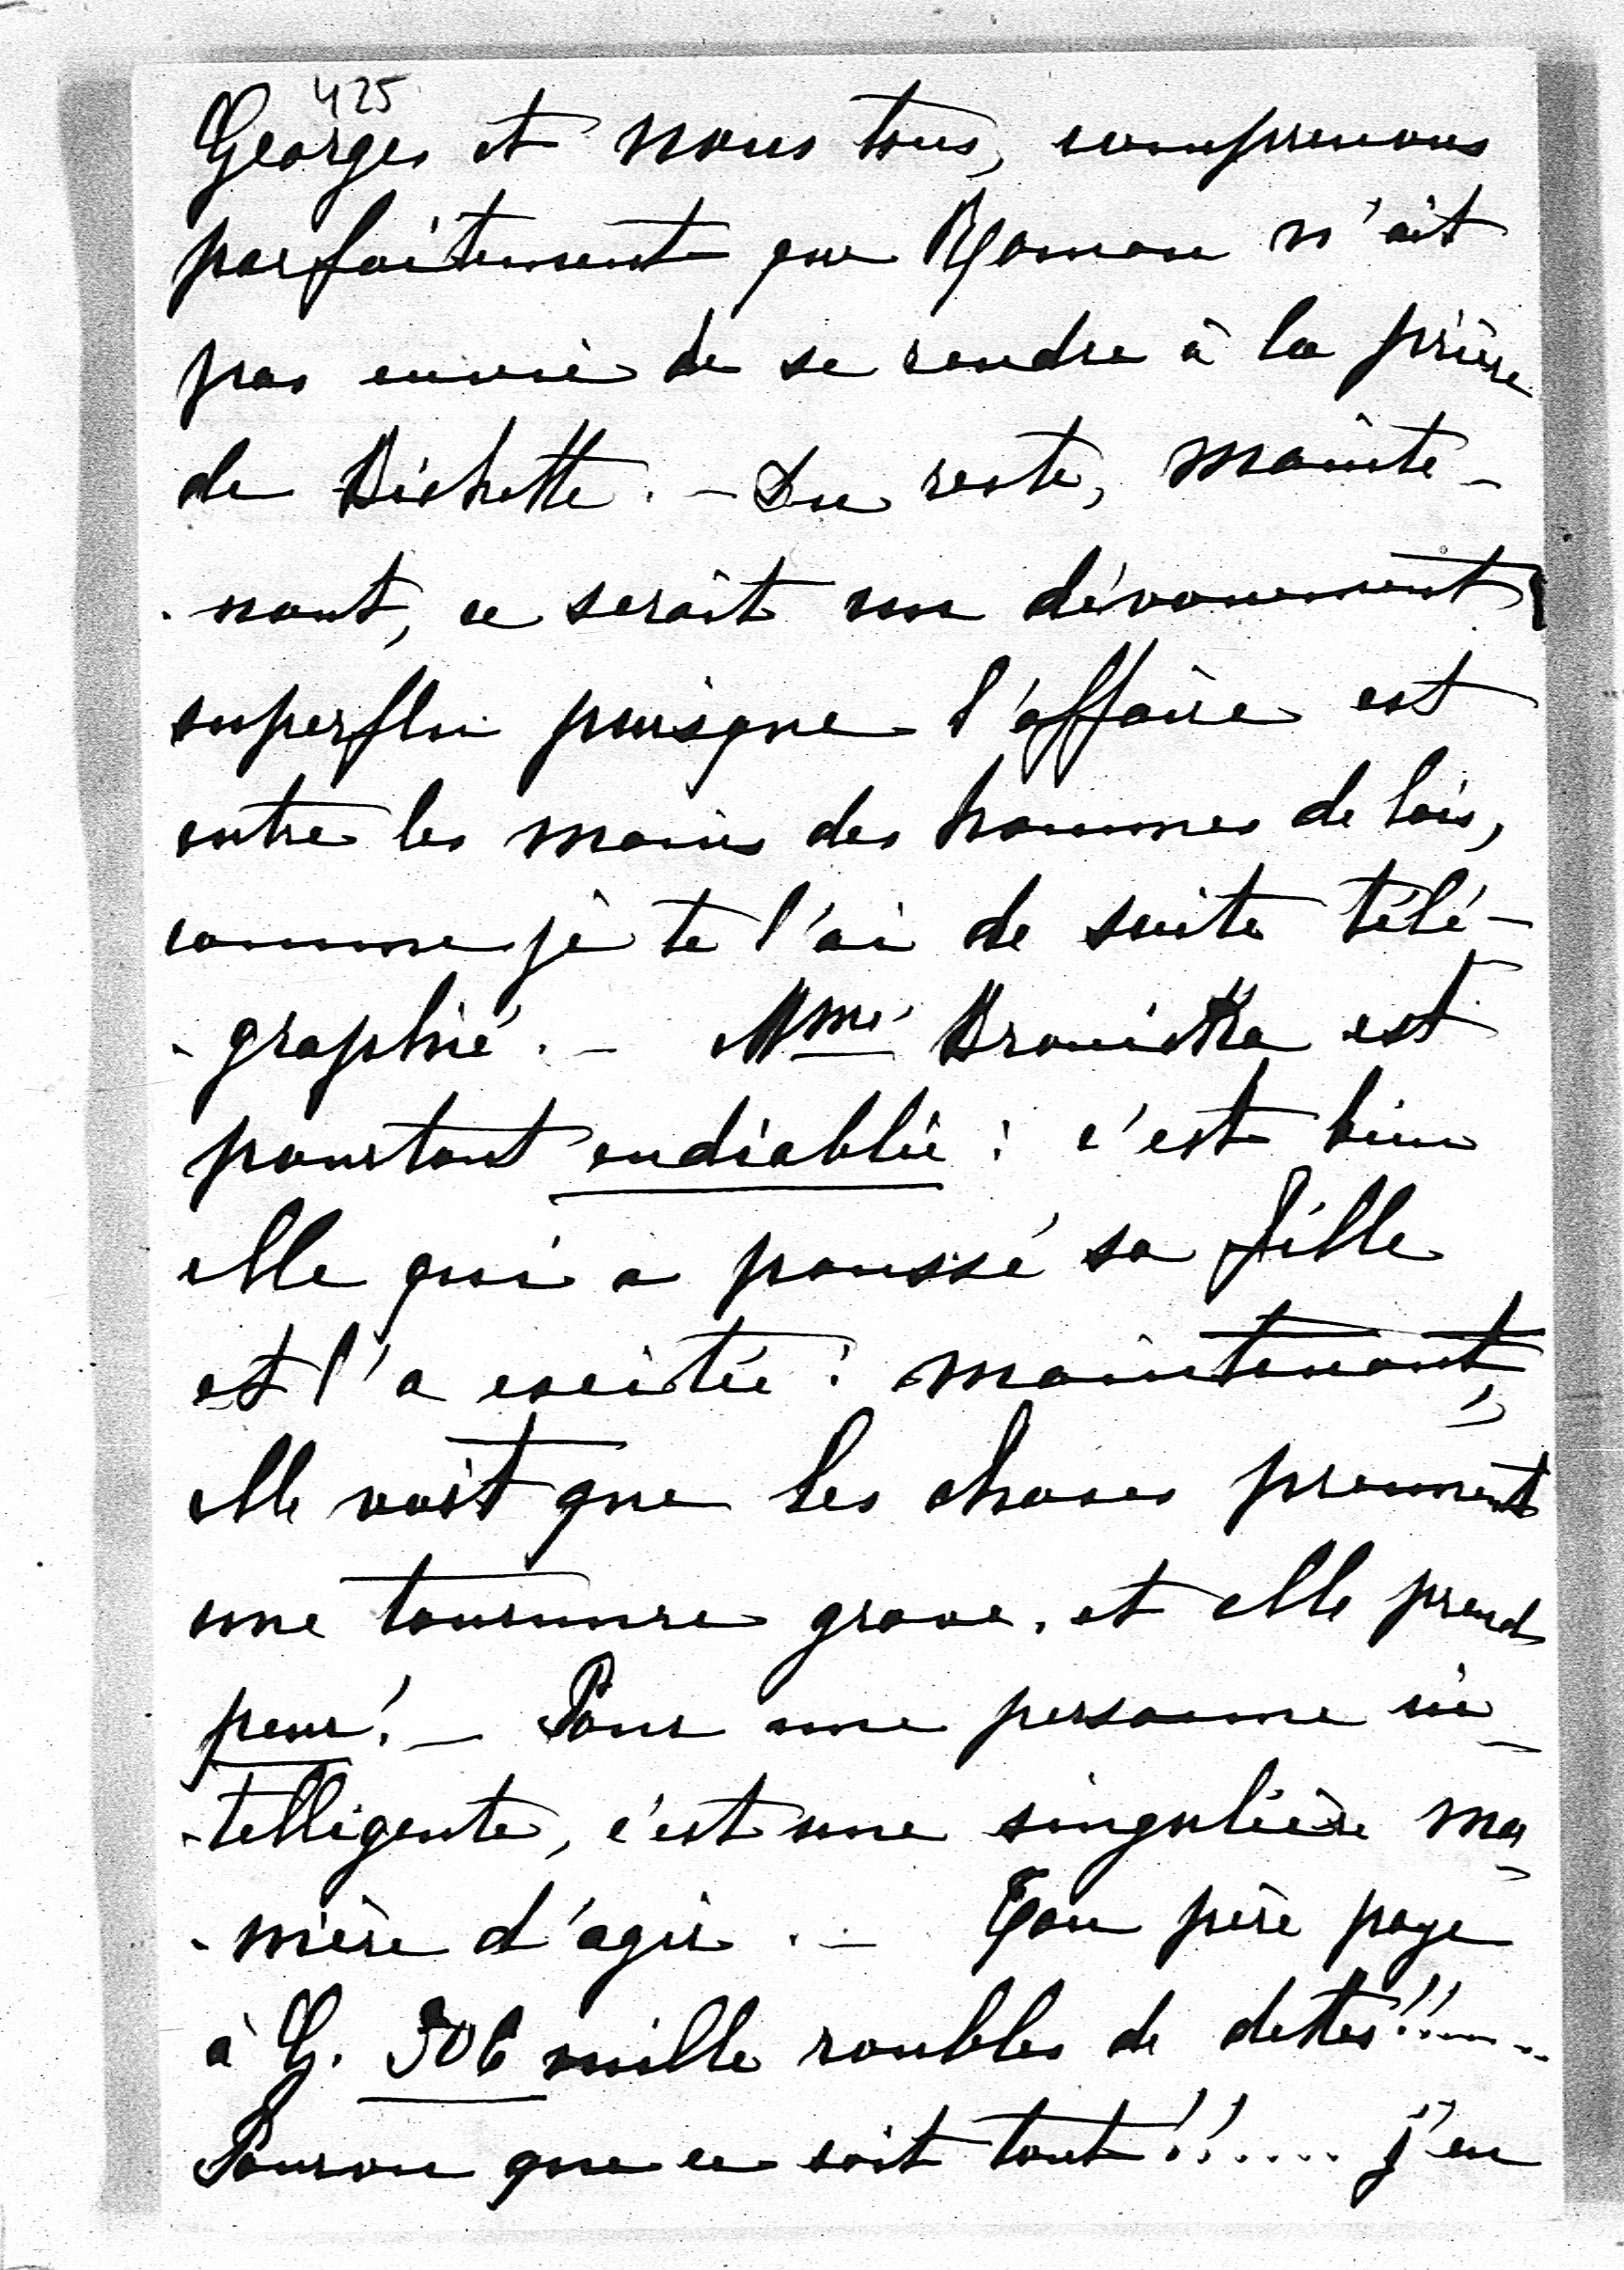 425
Georges et nous tous, comprenons
parfaitement que Roman n'ait
pas envie de se rendre à la prière
de Bichette. – Du reste, mainte-
-nant, ce serait un dévouement
superflu puisque l'affaire est
entre les mains des hommes de lois,
comme je te l'ai de suite télé-
-graphié. – Mme est
pourtant endiablée : c'est bien
elle qui a poussé sa fille
et l'a excitée : maintenant,
elle voit que les choses prennent
une tournure grave, et elle prend
peur! – Pour une personne in-
-telligente, c'est une singulière ma-
-nière d'agir. – Ton père paye
à G. mille roubles de dettes!!.....
Pourvu que ce soit tout!!..... j'en